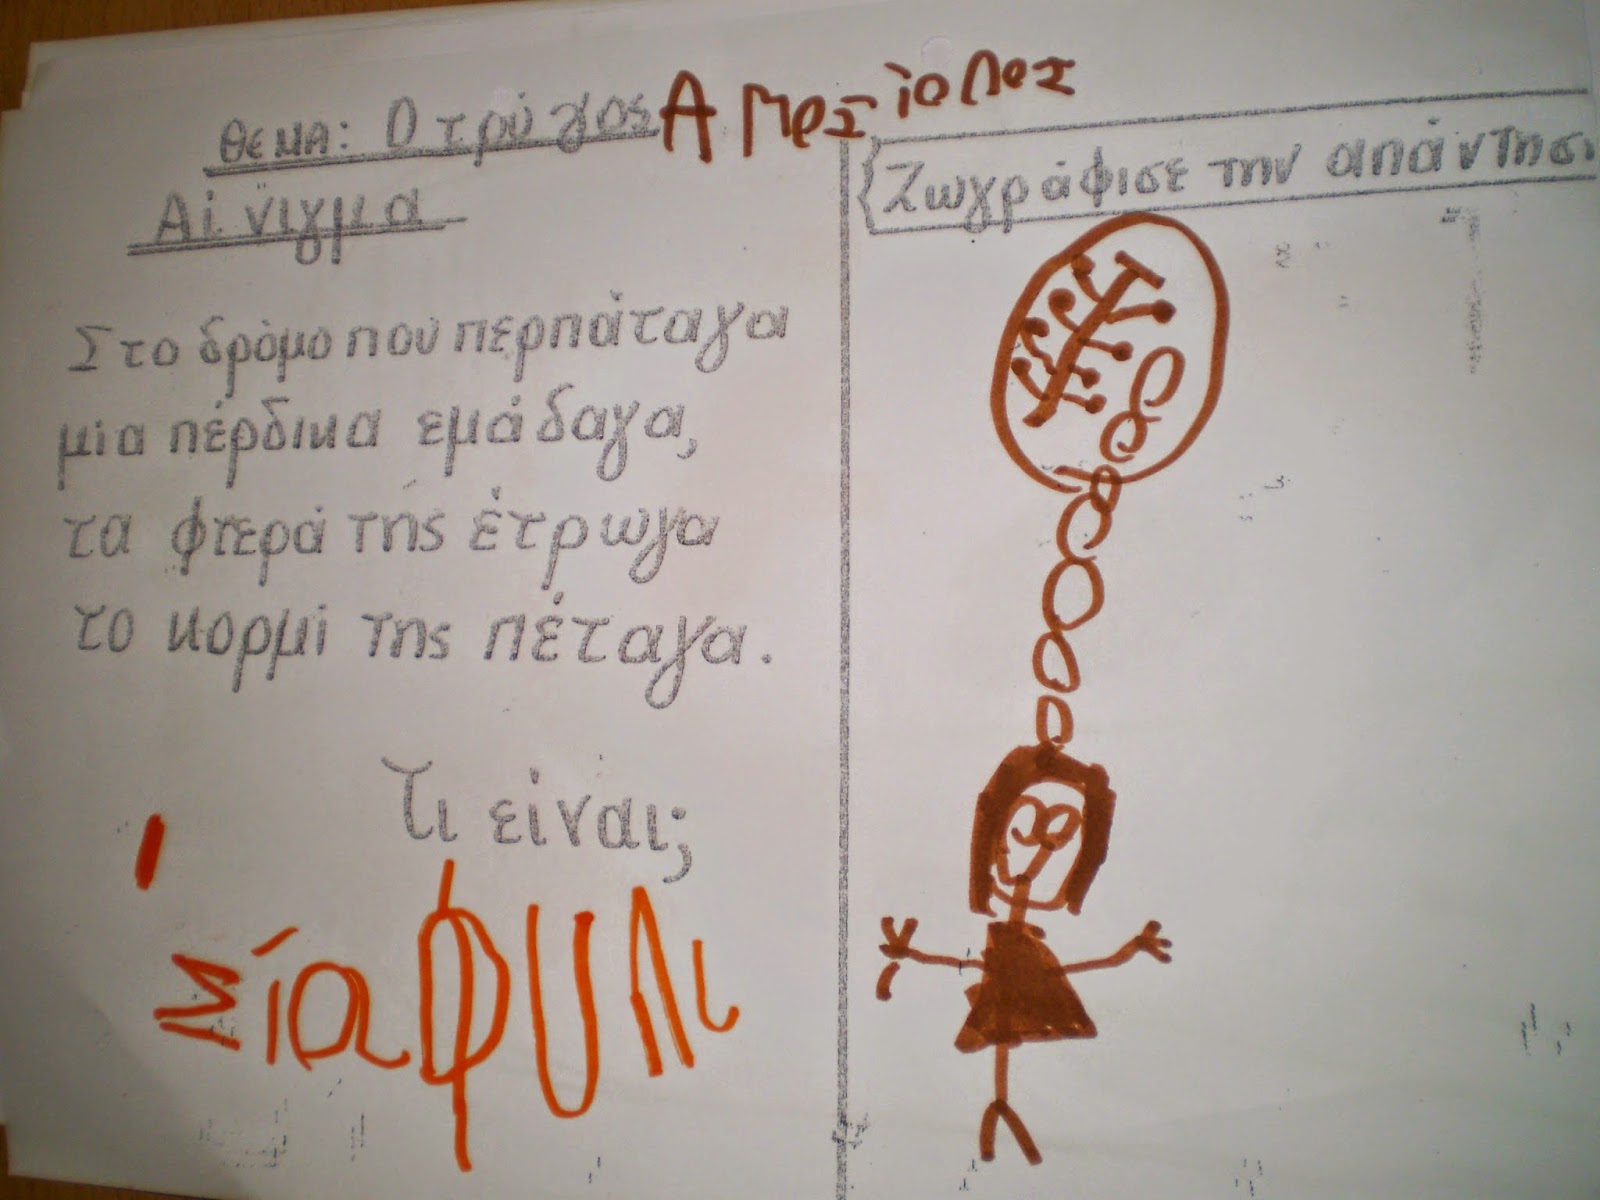 ΘΕΜΑ: Ο τρύγος
Αίνιγμα
Στο δρόμο που περπάταγα
μια πέρδικα εμάδαγα,
τα φτερά της έτρωγα
το κορμί της πέταγα.
Τι είναι;
ΜίαΦΥΛι
Ζωγράφισε την απάντηση